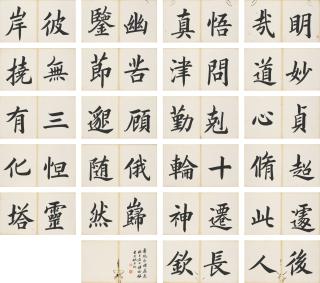 明哉悟真幽鑒彼岸
妙道問津苦莭無撓
貞心剋勤顧邈三有
超脩十輪俄随怛化
遽此遷神巋然靈塔
後人長欽